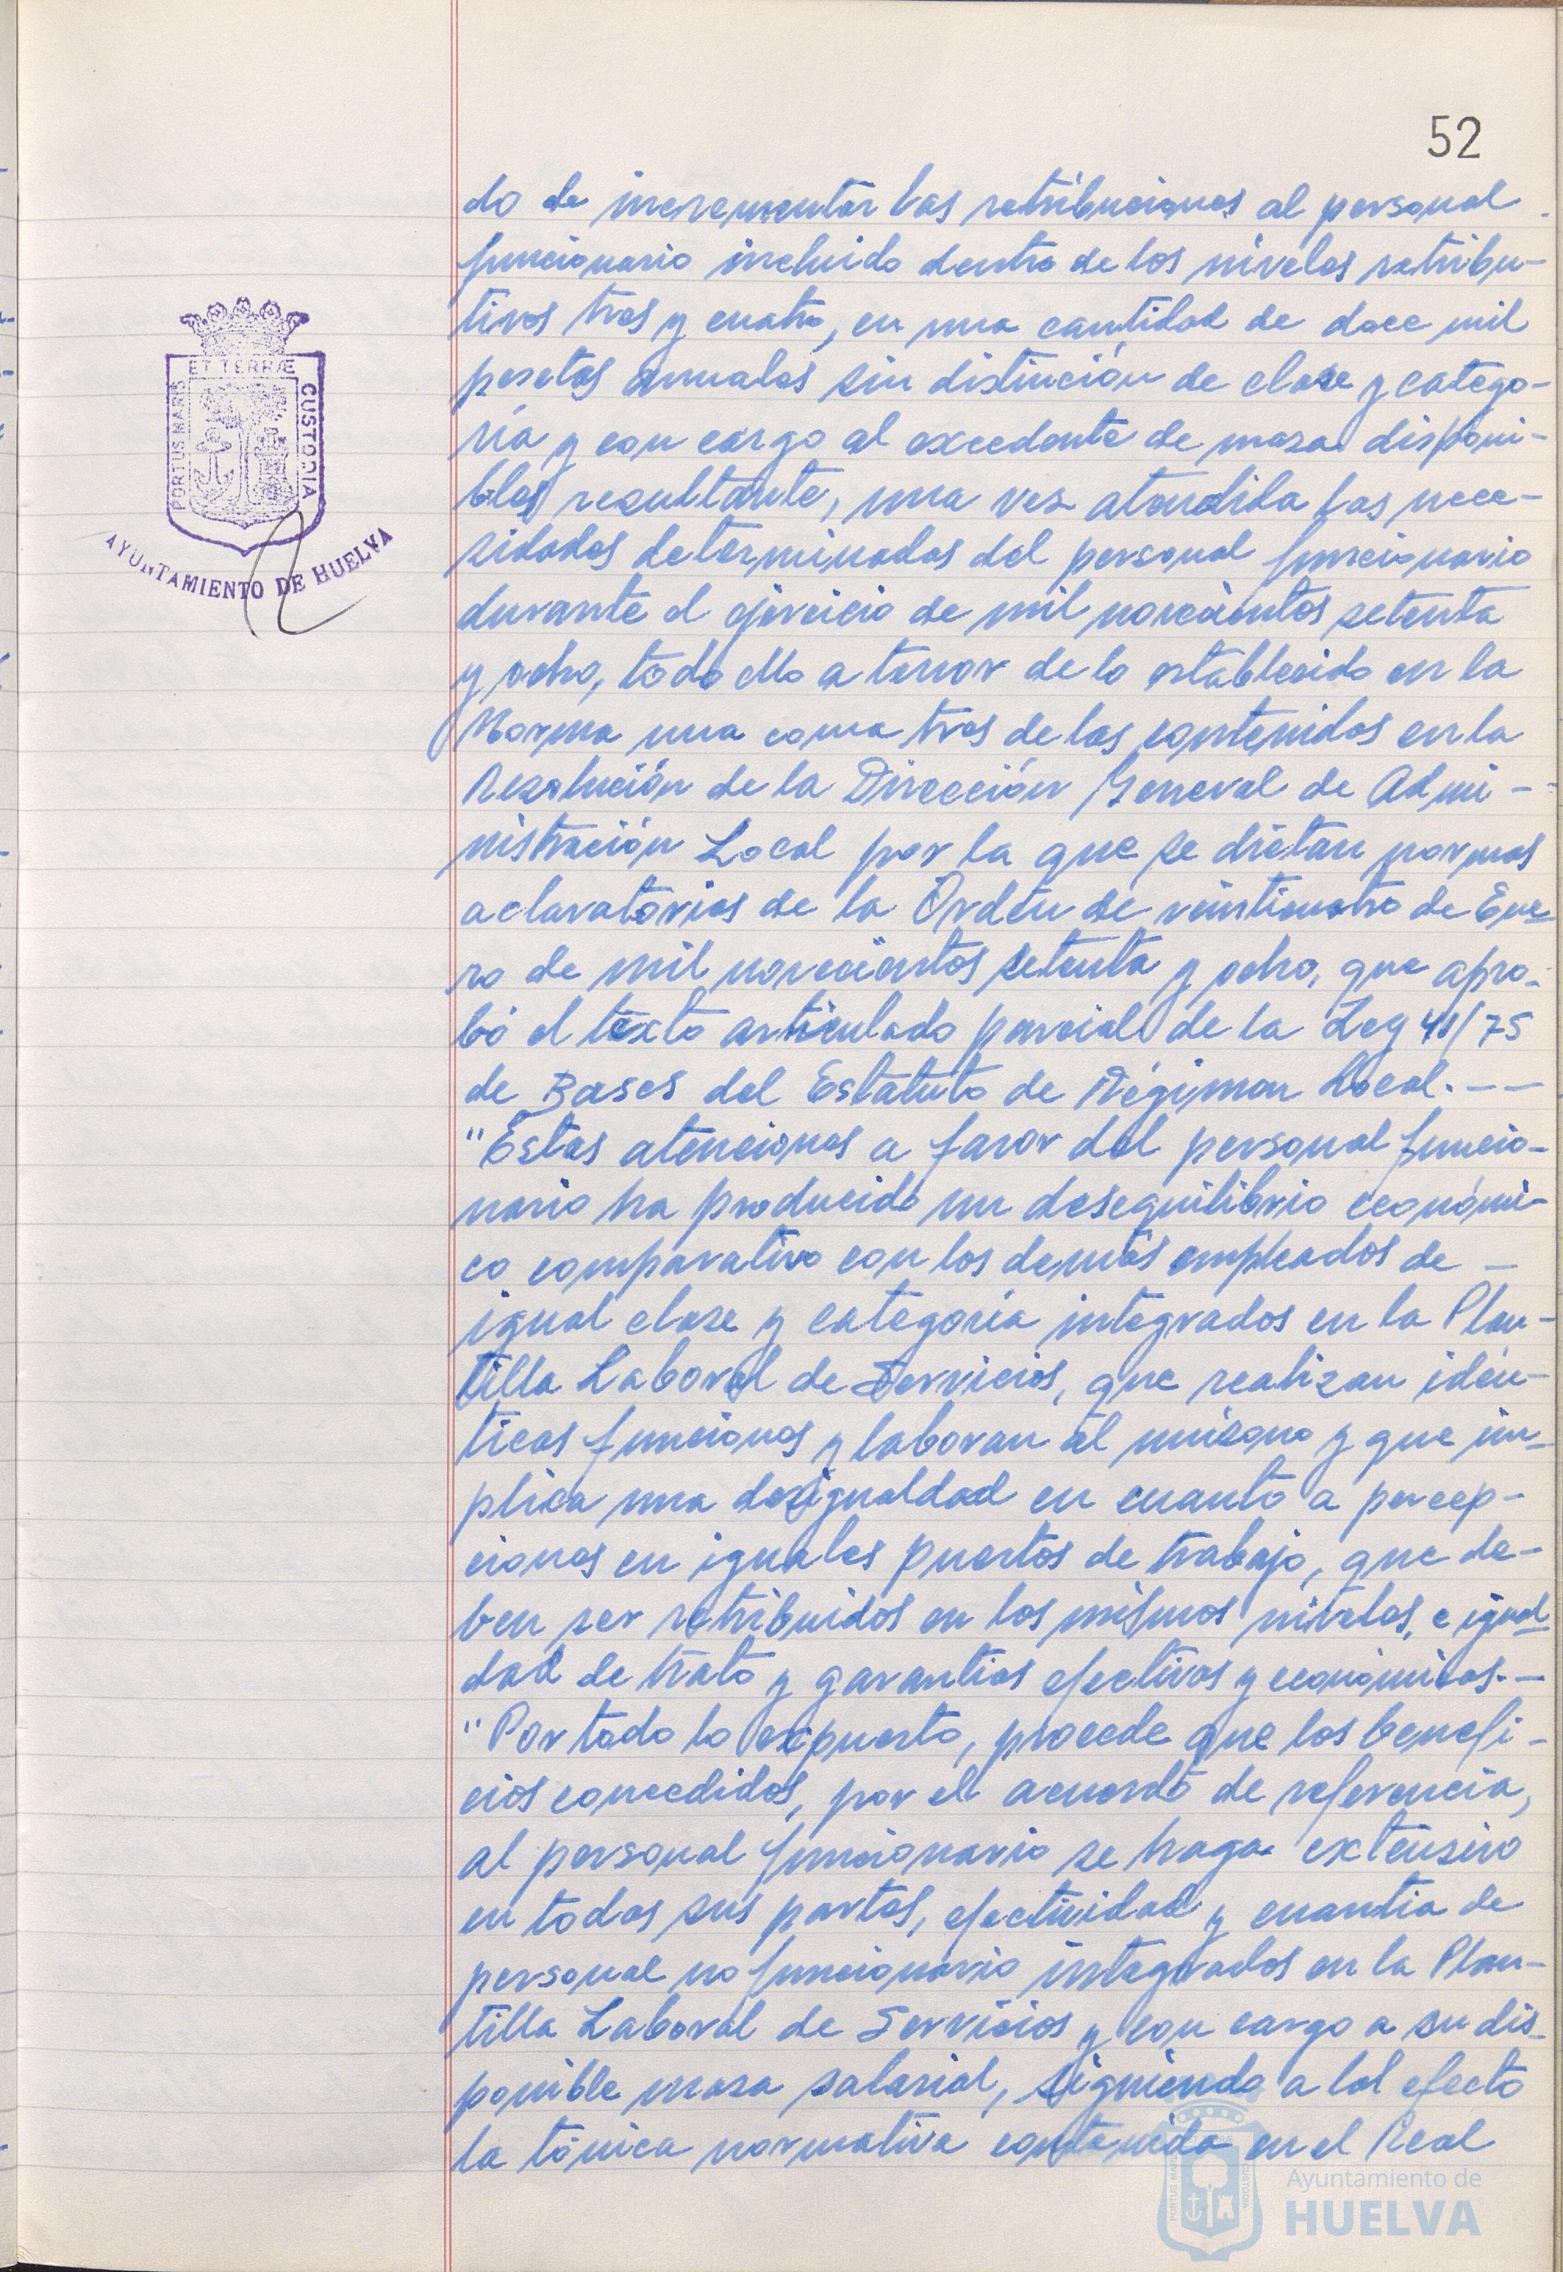 52
do de incrementar las retribuciones al personal
funcionario incluido dentro de los niveles retribu-
tivos tres y cuatro, en una cantidad de doce mil
pesetas anuales sin distinción de clase y catego-
ría y con cargo al excedente de masa disponi-
bles resultante, una vez atendida las nece-
sidades determinadas del personal funcionario
durante el ejercicio de mil novecientos setenta
y ocho, todo ello a tenor de lo establecido en la
Norma una coma tres de las contenidas en la
Resolución de la Dirección General de Admi-
nistración Local por la que se dictan normas
aclaratorias de la Orden de veinticuatro de Ene-
ro de mil novecientos setenta y ocho, que apro-
bó el texto articulado parcial de la Ley 41/75
de Bases del Estatuto de Régimen Local. - -
"Estas atenciones a favor del personal funcio-
nario ha producido un desequilibrio económi-
co comparativo con los demás empleados de -
igual clase y categoría integrados en la Plan-
tilla Laboral de Servicios, que realizan idén-
ticas funciones y laboran al unísono y que im-
plica una desigualdad en cuanto a percep-
ciones en iguales puestos de trabajo, que de-
ben ser retribuidos en los mismos niveles, e igual-
dad de trato y garantías efectivas y económicas. -
"Por todo lo expuesto, procede que los benefi-
cios concedidos, por el acuerdo de referencia,
al personal funcionario se haga extensivo
en todas sus partes, efectividad y cuantía de
personal no funcionario integrados en la Plan-
tilla Laboral de Servicios y con cargo a su dis-
ponible masa salarial, siguiendo a tal efecto
la tónica normativa contenida en el Real
PORTUS MARIS ET TERRÆ CUSTODIA
AYUNTAMIENTO DE HUELVA
Ayuntamiento de
HUELVA